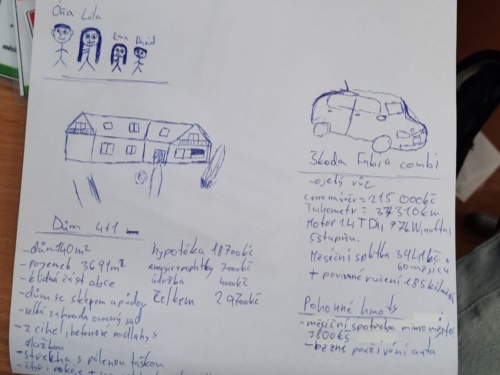 Ota Lída
Ema David
Škoda Fabia combi
- ojetý vůz
cena nové = 215 000 Kč
Tachometr = 37 310 km
Motor 1.4 TDi, 77 kW, nafta,
5 stupňů.
Měsíční splátka
60 měsíců
+ povinné ručení
Pohonné hmoty
- měsíční spotřeba mimo město
2800 Kč
- běžné používání auta
Dům 4+1
- dům 140 m²
- pozemek 3691 m²
- klidná část obce
- dům se sklepem a půdou
- velká zahrada ovocný sad
- z cihel, betonové podlahy s
dlažbou
- střecha s pálenou taškou
hypotéka 18700 Kč
energie+poplatky 7000 Kč
údržba 4000 Kč
Celkem 29700 Kč